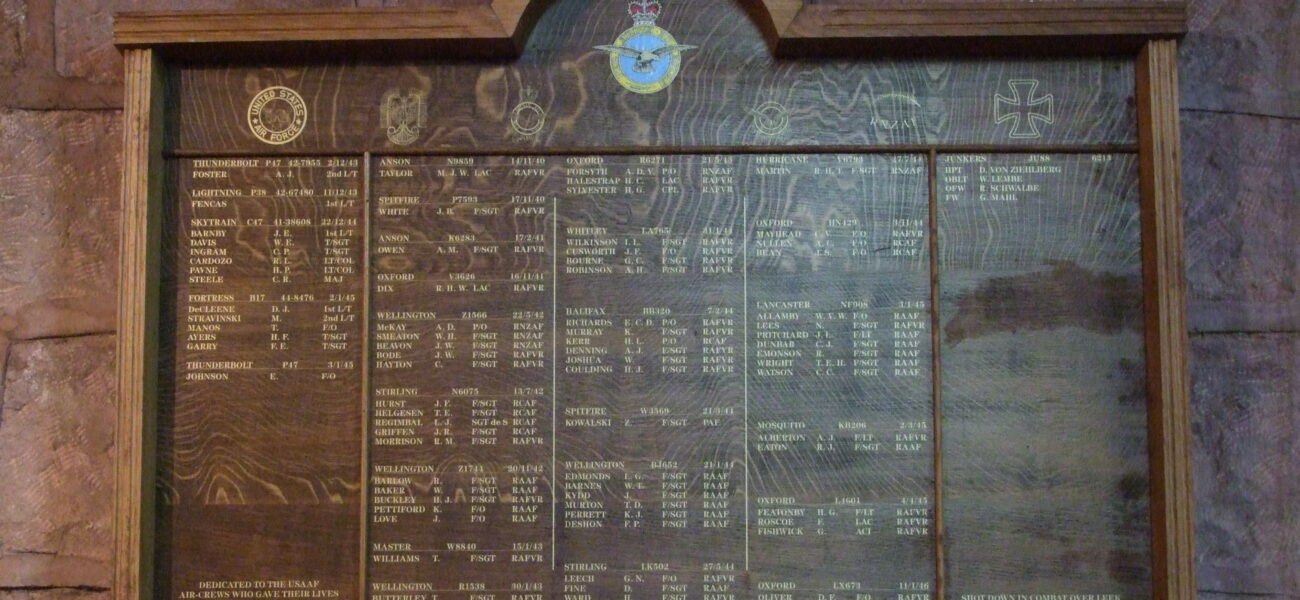 UNITED STATES
AIR FORCE
RNZAF
THUNDERBOLT P47 42-7955 2/12/43
FOSTER A. J. 2nd L/T
LIGHTNING P38 42-67480 11/12/43
FENCAS 1st L/T
SKYTRAIN C47 41-38608 22/12/44
BARNBY J. E. 1st L/T
DAVIS W. E. T/SGT
INGRAM C. P. T/SGT
CARDOZO R. L. LT/COL
PAYNE H. P. LT/COL
STEELE C. R. MAJ
FORTRESS B17 44-8476 2/1/45
DeCLEENE D. J. 1st L/T
STRAVINSKI M. 2nd L/T
MANOS T. F/O
AYERS H. F. T/SGT
GARRY F. E. T/SGT
THUNDERBOLT P47 3/1/45
JOHNSON E. F/O
DEDICATED TO THE USAAF
AIR-CREWS WHO GAVE THEIR LIVES
ANSON N9859 14/11/40
TAYLOR M. J. W. LAC RAFVR
SPITFIRE P7593 17/11/40
WHITE J. B. F/SGT RAFVR
ANSON K6283 17/2/41
OWEN A. M. F/SGT RAFVR
OXFORD V3626 16/11/41
DIX R. H. W. LAC RAFVR
WELLINGTON Z1566 22/5/42
McKAY A. D. P/O RNZAF
SMEATON W. H. F/SGT RNZAF
BEAVON J. W. F/SGT RNZAF
BODE J. W. F/SGT RAFVR
HAYTON C. F/SGT RAFVR
STIRLING N6075 13/7/42
HURST J. F. F/SGT RCAF
HELGESEN T. E. F/SGT RCAF
REGIMBAL L. J. SGT de S RCAF
GRIFFEN J. R. F/SGT RCAF
MORRISON R. M. F/SGT RAFVR
WELLINGTON Z1744 20/11/42
BARLOW R. F/SGT RAAF
BAKER W. F/SGT RAAF
BUCKLEY H. J. F/SGT RAFVR
PETTIFORD K. F/O RAAF
LOVE J. F/O RAAF
MASTER W8840 15/1/43
WILLIAMS T. F/SGT RAFVR
WELLINGTON R1538 30/1/43
BUTTERLEY T. F/SGT RAFVR
OXFORD R6271 21/5/43
FORSYTH A. D. V. P/O RNZAF
HALESTRAP H. C. LAC RAFVR
SYLVESTER H. G. CPL RAFVR
WHITLEY LA765 31/1/44
WILKINSON L. L. F/SGT RAFVR
CUSWORTH J. F. F/O RAFVR
BOURNE G. C. F/SGT RAFVR
ROBINSON A. H. F/SGT RAFVR
HALIFAX BB320 7/2/44
RICHARDS E. C. D. P/O RAFVR
MURRAY K. F/SGT RAFVR
KERR H. L. P/O RCAF
DENNING A. J. F/SGT RAFVR
JOSHUA W. F/SGT RAFVR
COULDING H. J. F/SGT RAFVR
SPITFIRE W3569 21/3/44
KOWALSKI Z. F/SGT PAF
WELLINGTON BJ652 21/4/44
EDMONDS L. G. F/SGT RAAF
BARNES W. T. F/SGT RAAF
KYDD J. F/SGT RAAF
MURTON T. D. F/SGT RAAF
PERRETT K. J. F/SGT RAAF
DESHON F. P. F/SGT RAAF
STIRLING LK502 27/5/44
LEECH G. N. F/O RAFVR
FINE D. F/SGT RAFVR
WARD H. F/SGT RAFVR
HURRICANE V6793 17/7/44
MARTIN R. H. T. F/SGT RNZAF
OXFORD HN429 3/11/44
MAYHEAD F/O RAFVR
F/O RCAF
BEAN J. S. F/O RCAF
LANCASTER NF908 3/1/45
ALLAMBY W. V. W. F/O RAAF
LEES N. F/SGT RAFVR
PRITCHARD J. L. F/LT RAAF
DUNBAR C. J. F/SGT RAAF
EMONSON R. F/SGT RAAF
WRIGHT T. E. H. F/SGT RAAF
WATSON C. C. F/SGT RAAF
MOSQUITO KB206 2/3/45
ALBERTON A. J. F/LT RAFVR
EATON R. J. F/SGT RAAF
OXFORD L4601 4/4/45
FEATONBY H. G. F/LT RAFVR
ROSCOE F. LAC RAFVR
FISHWICK G. AC1 RAFVR
OXFORD LX673 11/1/46
OLIVER D. F. F/O RAFVR
JUNKERS JU88 6213
HPT D. VON ZIEHLBERG
OBLT W. LEMBE
OFW R. SCHWALBE
FW G. MAHL
SHOT DOWN IN COMBAT OVER LEEK